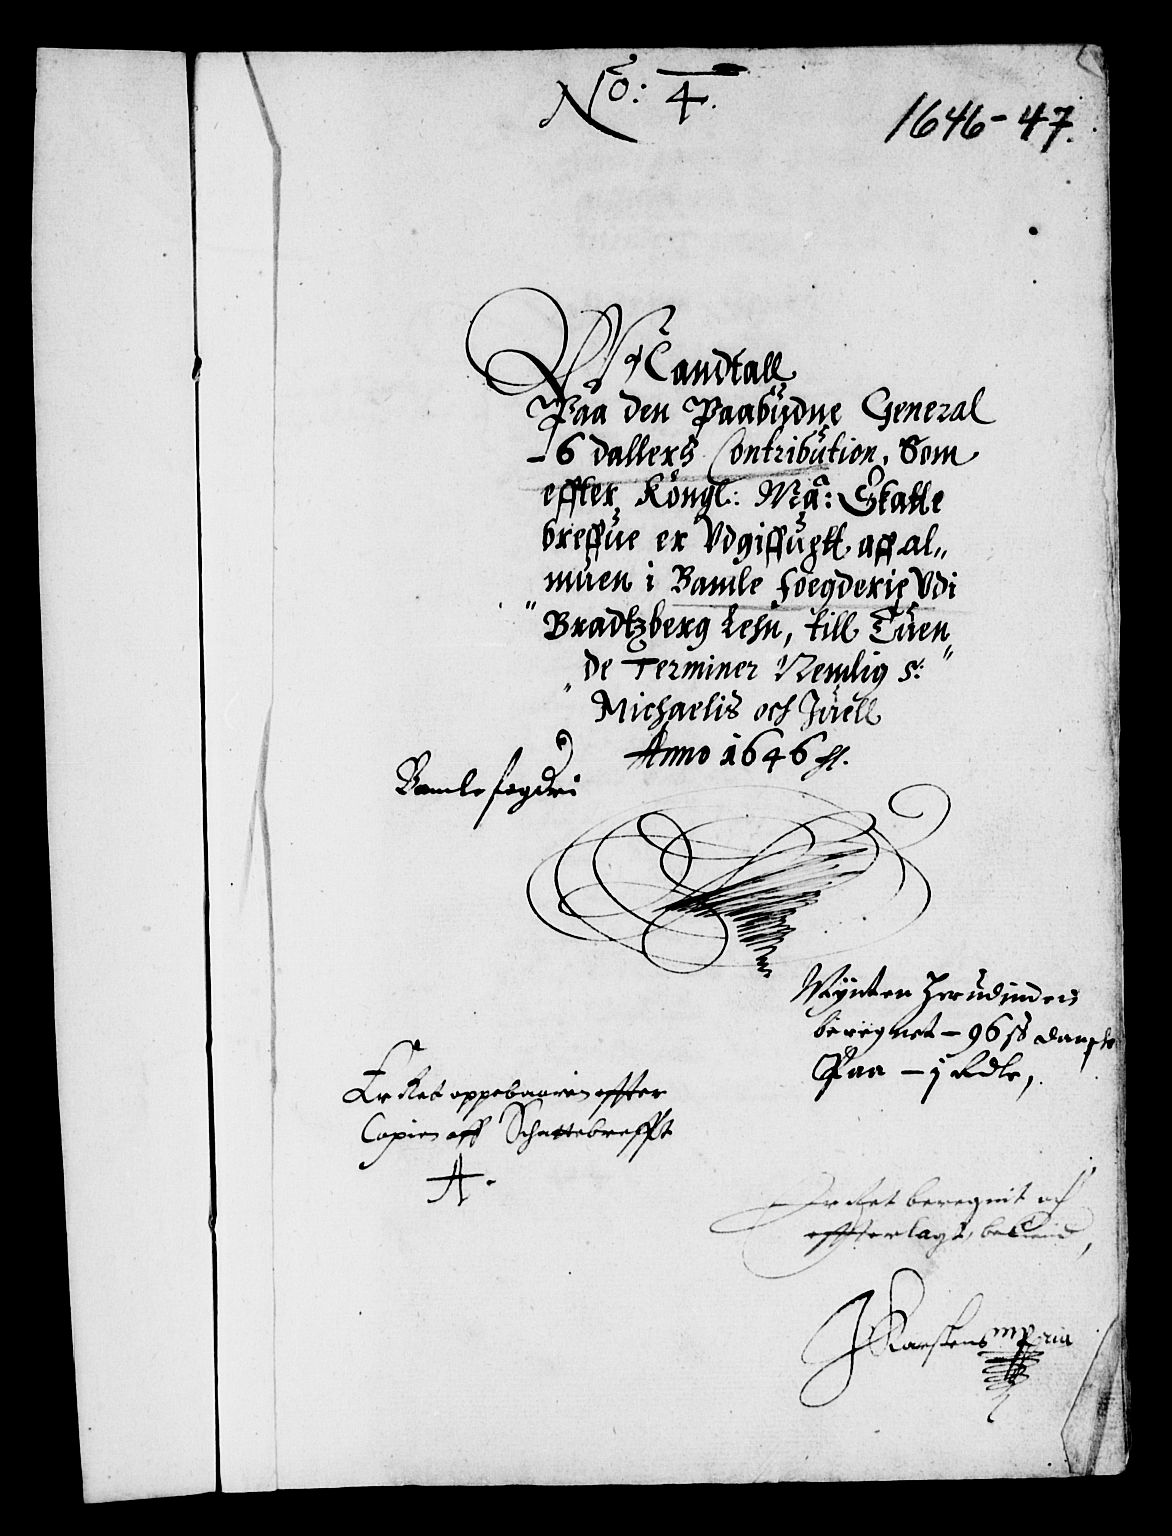 No: 4.
1646-47.
Mandtall
Paa den Paabudne General
-6 dallers Contribution, Som
effter Kongl: Ma: Skatte
breffue er Vdgiffuen aff al„
muen i Bamle foegderie Vdi
"Bradtzberg Lehn, till Tuen
de Terminer Nemlig S: "
" Michaelis och Juell
Anno 1646
Bamle fogdri
Mynten herudinden
beregnet - 96 ß danske
Paa - j Rdlr,
Er Ret oppebaaren effter
Copien aff Schattebreffet
A.
Er Ret beregnit och
effterlagt,
J Karstens mpria